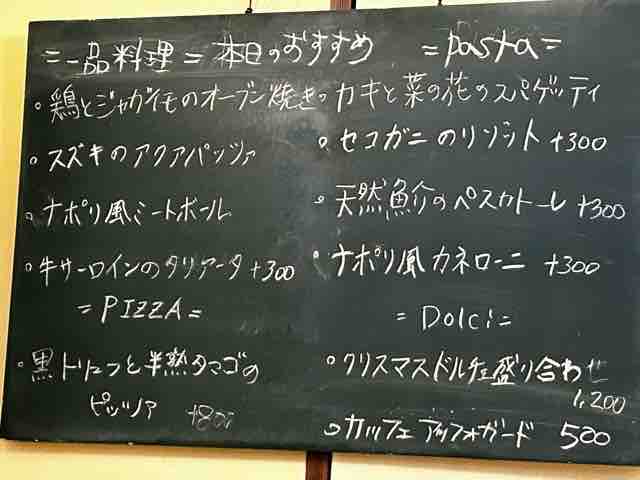 =一品料理= 本日のおすすめ
・鶏とジャガイモのオーブン焼き
・スズキのアクアパッツァ
・ナポリ風ミートボール
・牛サーロインのタリアータ +300
=PIZZA=
・黒トリュフと半熟タマゴの
ピッツァ +800
=pasta=
・カキと菜の花のスパゲッティ
・セコガニのリゾット +300
・天然魚介のペスカトーレ +300
・ナポリ風カネローニ +300
=Dolci=
・クリスマスドルチェ盛り合わせ
1,200
・カッフェアッフォガード 500